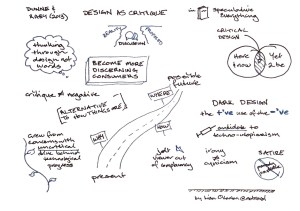 DUNNE &
RABY (2013)
DESIGN AS CRITIQUE
in
Speculative
Everything
thinking
through
design not
words
REALITY
DISCUSSION
BECOME MORE
DISCERNING
CONSUMERS
CRITICAL
DESIGN
Here
& now
Yet
2 be
critique ≠ negative
ALTERNATIVE
TO HOW THINGS ARE
WHERE
possible
future
DARK DESIGN
the +'ve use of the -'ve
antidote to
techno-utopianism
grew from
concerns with
uncritical
drive behind
technological
progress
WHY
HOW
jolt
viewer out
of complacency
irony ≠
cynicism
SATIRE
present